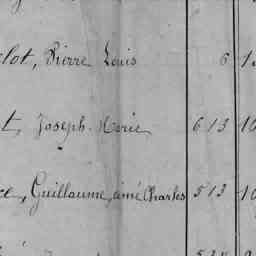 lot, Pierre Louis 6 1
t, Joseph-Marie 613 10
ce, Guillaume, aimé Charles 513 10